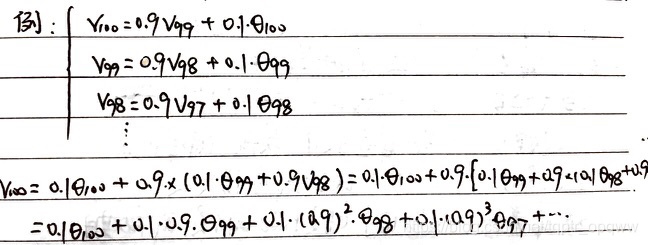 例: V₁₀₀ = 0.9V₉₉ + 0.1·θ₁₀₀
V₉₉ = 0.9V₉₈ + 0.1·θ₉₉
V₉₈ = 0.9V₉₇ + 0.1θ₉₈
⋮
V₁₀₀ = 0.1θ₁₀₀ + 0.9×(0.1·θ₉₉ + 0.9V₉₈) = 0.1·θ₁₀₀ + 0.9·[0.1θ₉₉ + 0.9×(0.1θ₉₈ + 0.9
= 0.1θ₁₀₀ + 0.1·0.9·θ₉₉ + 0.1·(0.9)²·θ₉₈ + 0.1·(0.9)³θ₉₇ + ⋯